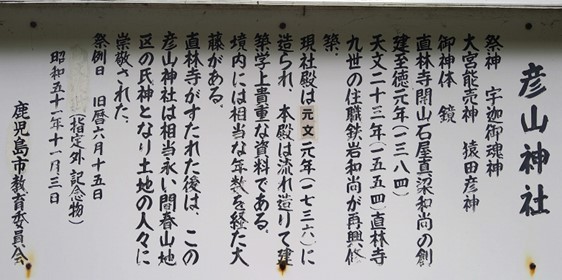 彦山神社
祭神　宇迦御魂神
大宮能売神　猿田彦神
御神体　鏡
直林寺開山石屋真梁和尚の創
建至徳元年（一三八四）
天文二十三年（一五五四）直林寺
九世の住職鉄岩和尚が再興修
築、
現社殿は元文元年（一七三六）に
造られ、本殿は流れ造りで建
築学上貴重な資料である。
境内には相当な年数を経た大
藤がある。
直林寺がすたれた後は、この
彦山神社は相当永い間春山地
区の氏神となり土地の人々に
崇敬された。
祭例日　旧暦六月十五日
（指定外　記念物）
昭和五十一年十一月三日
鹿児島市教育委員会